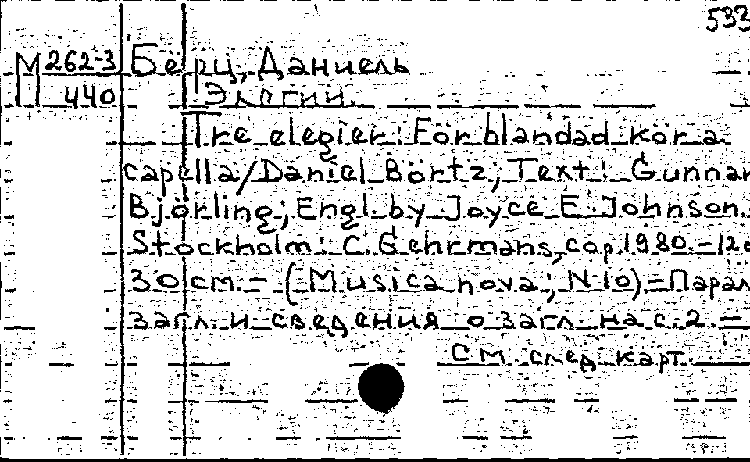 533
М 262-3 Бёрц, Даниель
440 Элегии.
Tre elegier: För blandad kör a
capella/Daniel Börtz; Text: Gunnar
Björling; Engl. by Joyce E. Johnson.
Stockholm: C. Gehrmans, cop. 1980.-12c
30 см. - (Musica nova; N 10) - Парал
загл. и сведения о загл. на с. 2. -
См. след. карт.